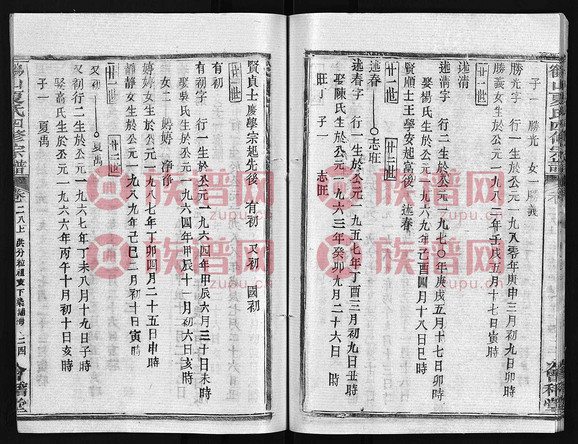 子一 勝光 女一 勝義
勝光字 行一生於公元一九八零年庚申三月初九日卯時
勝義女生於公元一九八二年壬戌五月十七日寅時
廿一世
述清
述清字 行二生於公元一九七〇年庚戌五月十七日卯時
娶楊氏生於公元一九六九年己酉四月十八日巳時
賢順士王學安起富後 述春
廿二世 廿三世
述春 志班
述春字 行一生於公元一九五七年丁酉三月初九日丑時
娶陳氏生於公元一九六三年癸卯九月二十六日 時
旺丁 子一 志班
賢貞士慶學宗起先後 有初 又初 國初
廿一世
有初
有初字 行一生於公元一九六四年甲辰六月三十日未時
娶吳氏生於公元一九六四年甲辰十一月初六日亥時
女二 婷婷 淨淨
婷婷女生於公元一九八七年丁卯四月二十五日申時
靜靜女生於公元一九
廿一世 廿二世
又初 夏禹
又初字 行二生於公元一九六七年丁未八月十九日子時
娶高氏生於公元一九六六年丙午十月初十日亥時
子一 夏禹
衡山夏氏四修宗譜
卷二八上
二四
會稽堂
族谱网
www.zupu.cn